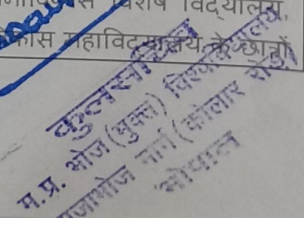 विशेष विद्यालय,
महाविद्यालय के छात्रों
कुलसचिव
म.प्र. भोज (मुक्त) विश्वविद्यालय
राजाभोज मार्ग (कोलार रोड)
भोपाल